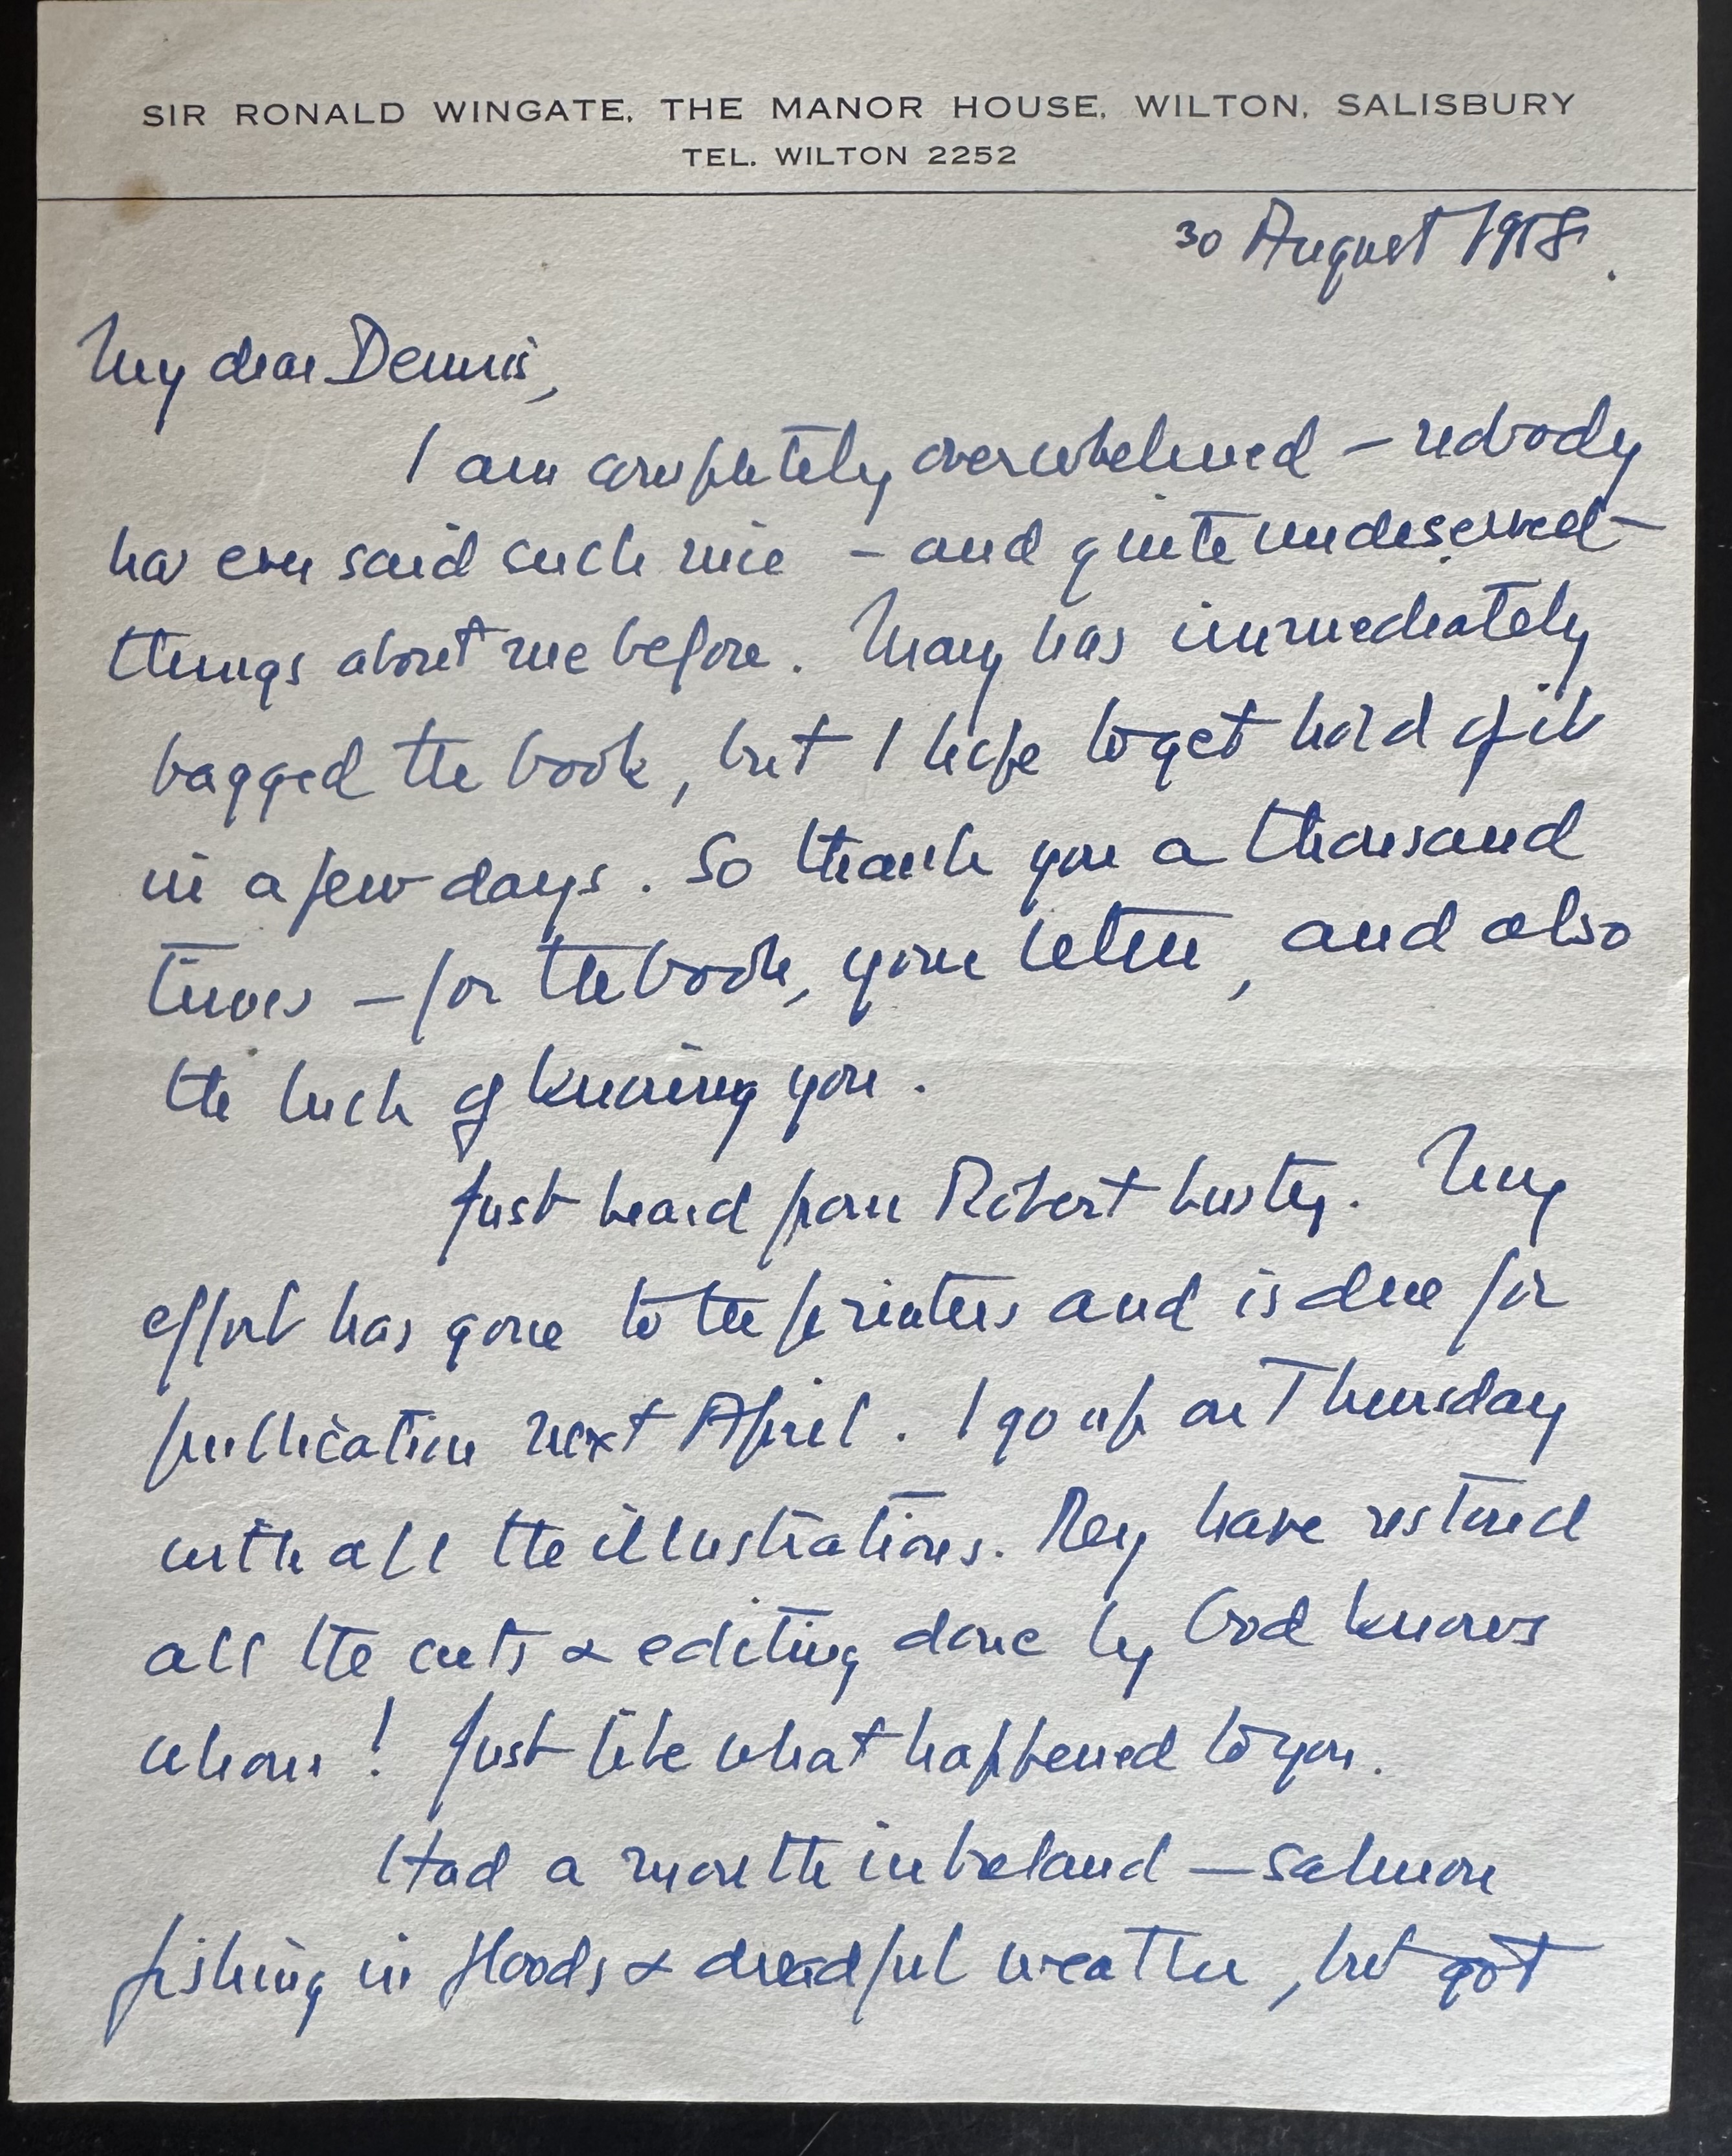 SIR RONALD WINGATE, THE MANOR HOUSE, WILTON, SALISBURY
TEL. WILTON 2252
30 August 1958.
My dear Dennis,
I am completely overwhelmed – nobody
has ever said such nice – and quite undeserved –
things about me before. Mary has immediately
bagged the book, but I hope to get hold of it
in a few days. So thank you a thousand
times – for the book, your letter, and also
the luck of knowing you.
Just heard from Robert Lusty. My
effort has gone to the printers and is due for
publication next April. I go up on Thursday
with all the illustrations. They have restored
all the cuts & editing done by God knows
whom! Just like what happened to you.
Had a month in Ireland – salmon
fishing in floods & dreadful weather, but got